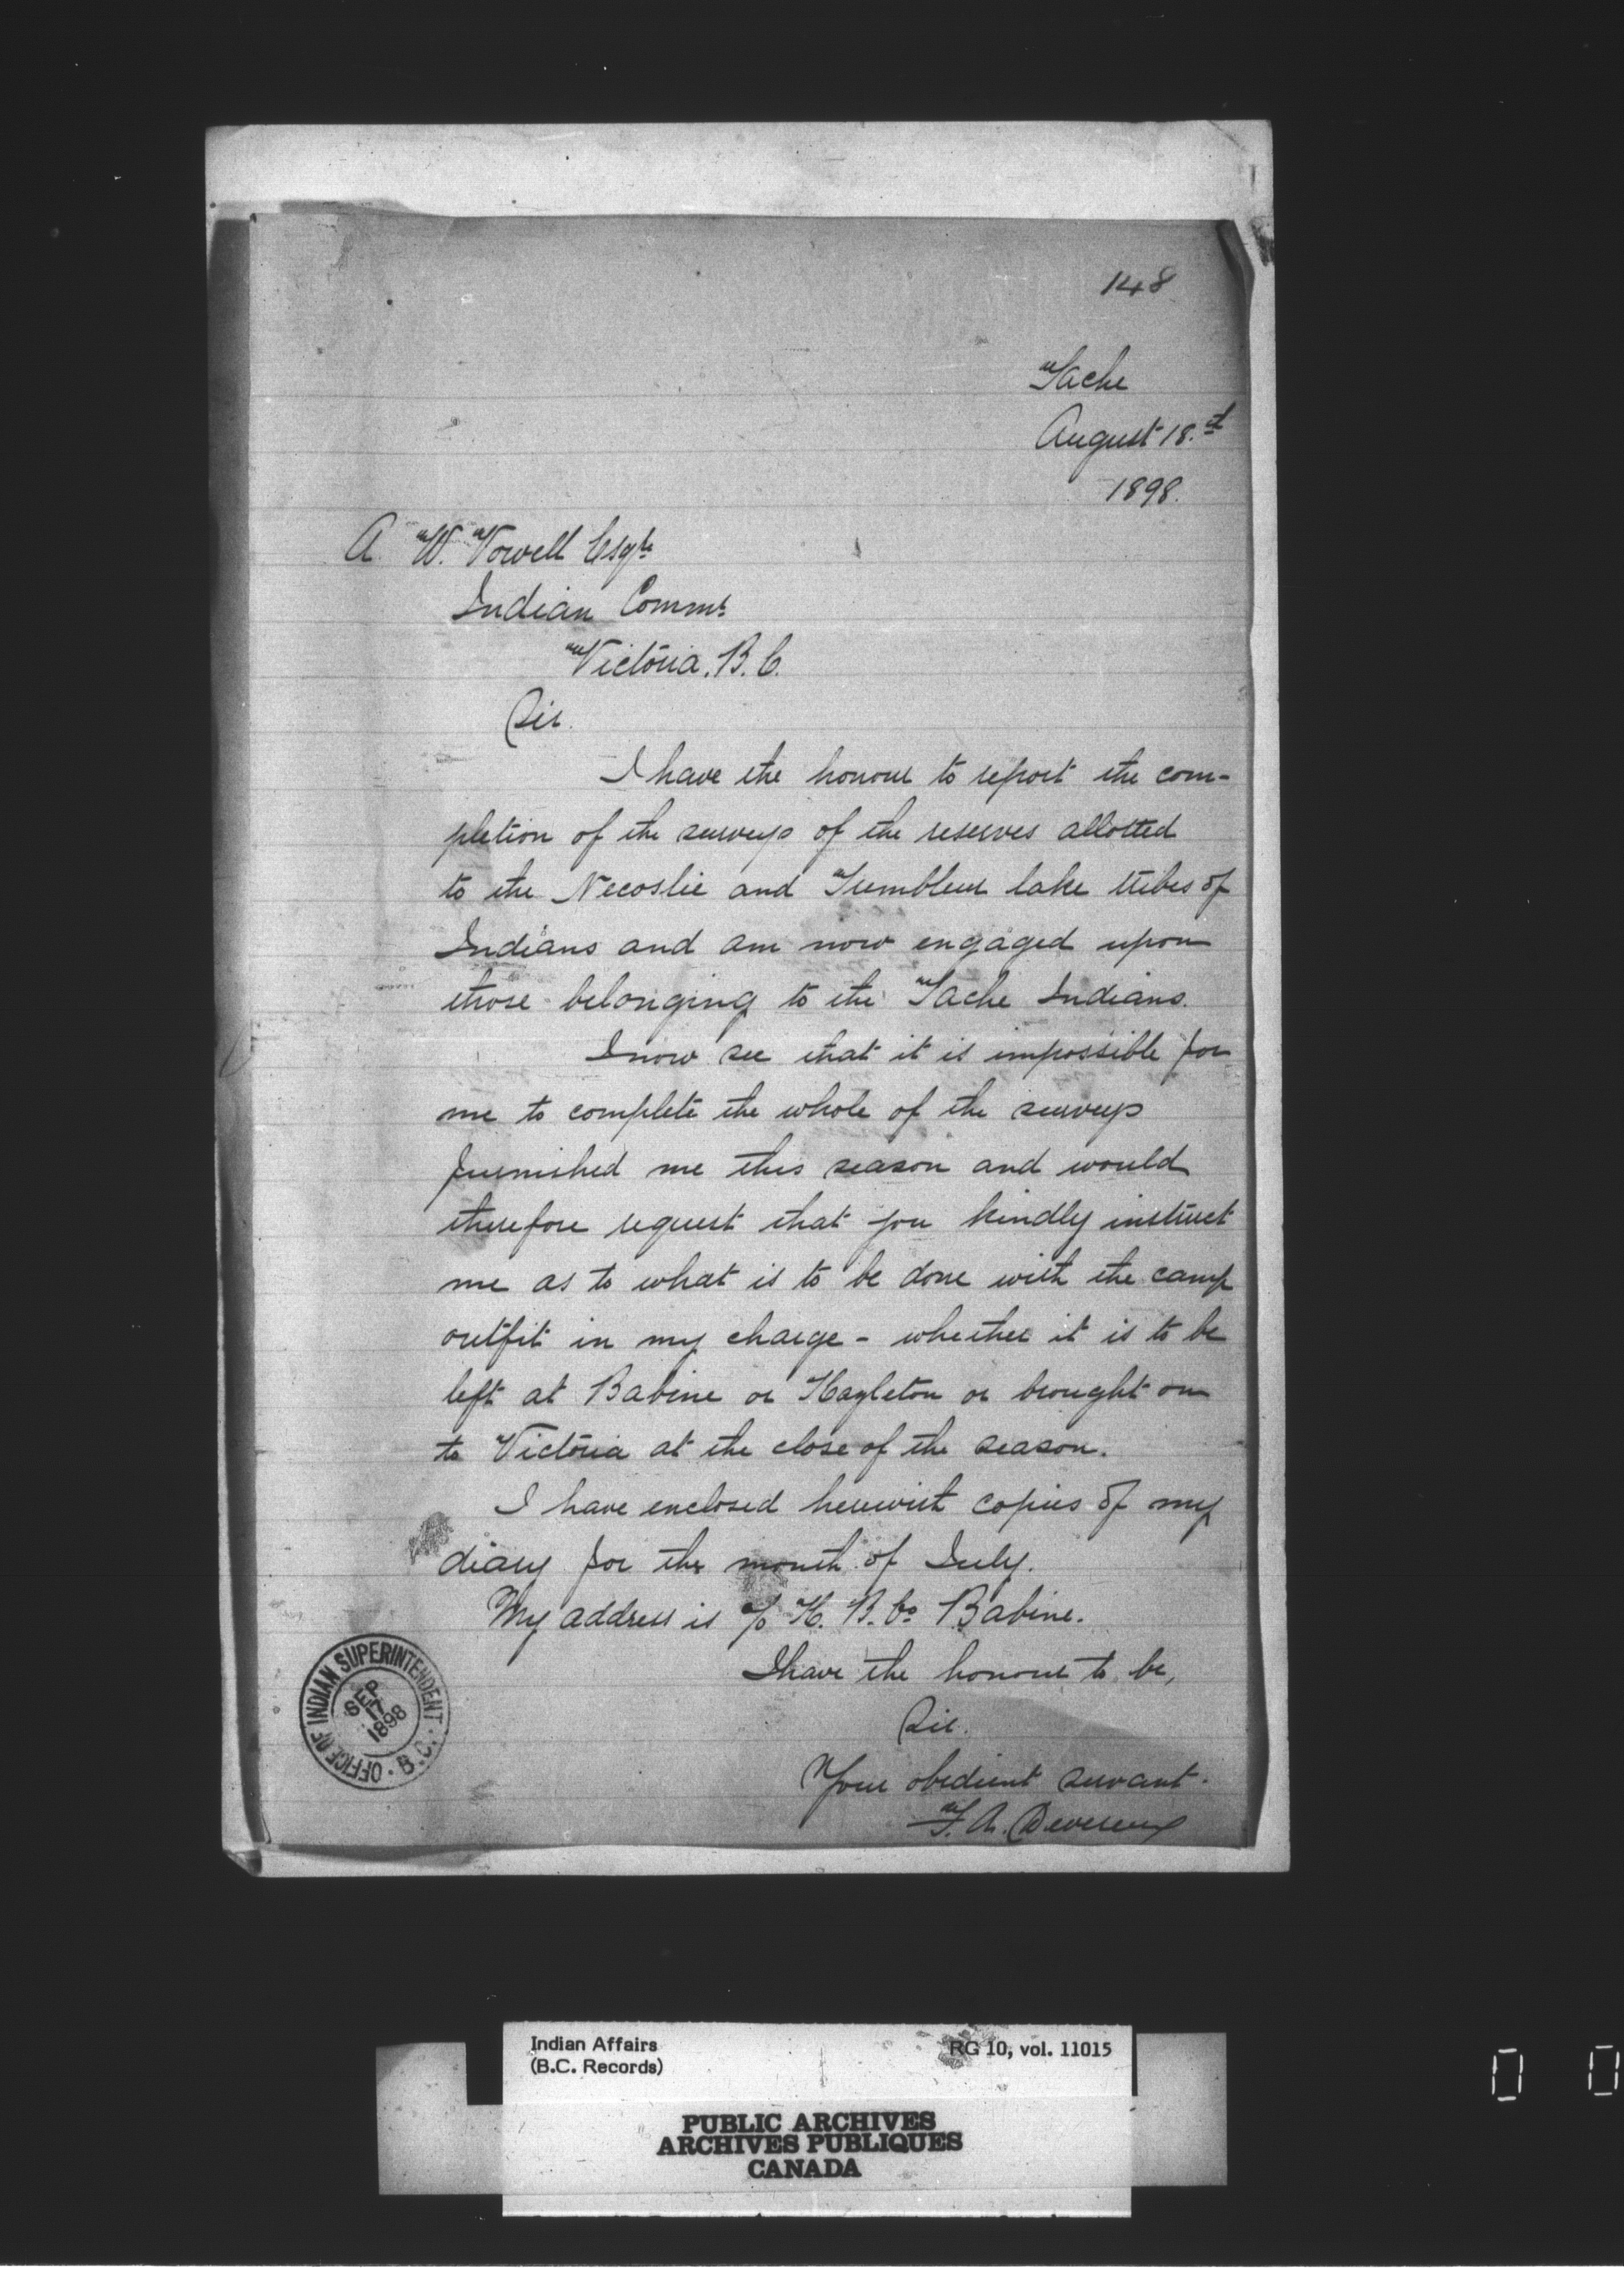 148
Tache
August 18.th
1898.
A. W. Vowell Esqre
Indian Commr
Victoria. B. C.
Sir.
I have the honour to report the com-
pletion of the surveys of the reserves allotted
to the Necoslie and Trembleur lake tribes of
Indians and am now engaged upon
those belonging to the Tache Indians.
I now see that it is impossible for
me to complete the whole of the surveys
furnished me this season and would
therefore request that you kindly instruct
me as to what is to be done with the camp
outfit in my charge - whether it is to be
left at Babine or Hazleton or brought on
to Victoria at the close of the season.
I have enclosed herewith copies of my
diary for the month of July.
My address is c/o H. B. Co Babine.
I have the honour to be,
Sir.
Your obedient servant.
F. A. Devereux
OFFICE OF INDIAN SUPERINTENDENT. B.C.
SEP
17
1898
Indian Affairs
(B.C. Records)
RG 10, vol. 11015
PUBLIC ARCHIVES
ARCHIVES PUBLIQUES
CANADA
0 0